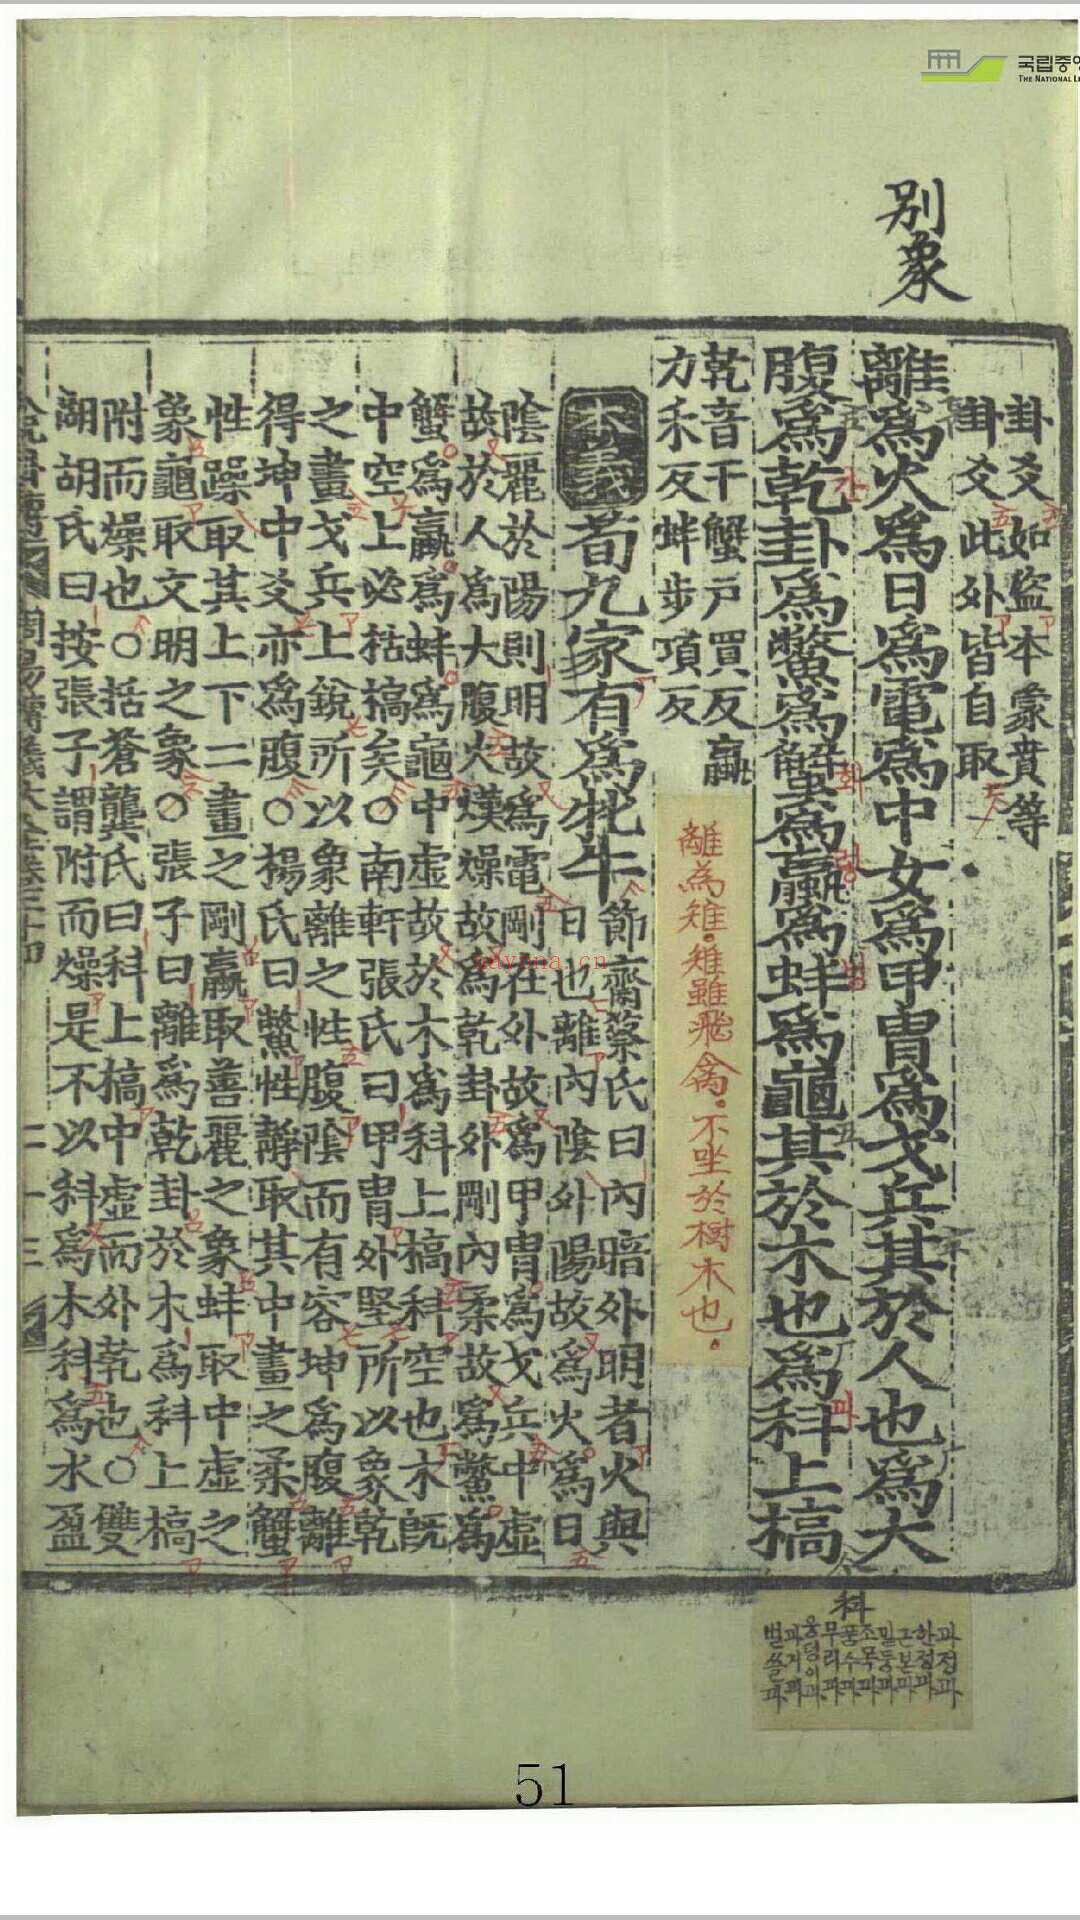 국립중앙
THE NATIONAL LI
别象
卦爻如盜本象賁等
卦爻此外皆自取
離爲火爲日爲電爲中女爲甲冑爲戈兵其於人也爲大
腹爲乾卦爲鱉爲蟹爲蠃爲蚌爲龜其於木也爲科上槁
乾音干蟹戶買反蠃
力禾反蚌步項反
離為雉。雉雖飛禽。不坐於樹木也。
本義
荀九家有爲牝牛
節齋蔡氏曰內暗外明者火與
日也離內陰外陽故爲火爲日
陰麗於陽則明故爲電剛在外故爲甲冑爲戈兵中虛
故於人爲大腹火熯燥故爲乾卦外剛內柔故爲鱉爲
蟹爲蠃爲蚌爲龜中虛故於木爲科上槁科空也木旣
中空上必枯槁矣○南軒張氏曰甲冑外堅所以象乾
之畫戈兵上銳所以象離之性腹陰而有容坤爲腹離
得坤中爻亦爲腹○楊氏曰鱉性靜取其中畫之柔蟹
性躁取其上下二畫之剛蠃取善麗之象蚌取中虛之
象龜取文明之象○張子曰離爲乾卦於木爲科上槁
附而燥也○括蒼龔氏曰科上槁中虛而外乾也○雙
湖胡氏曰按張子謂附而燥是不以科爲木科爲水盈
周易傳義大全卷二十四
二十三
科
과정과
한정과
근본과
밑둥과
조목과
품수과
무리과
웅덩이과
과거과
벌쓸과
51